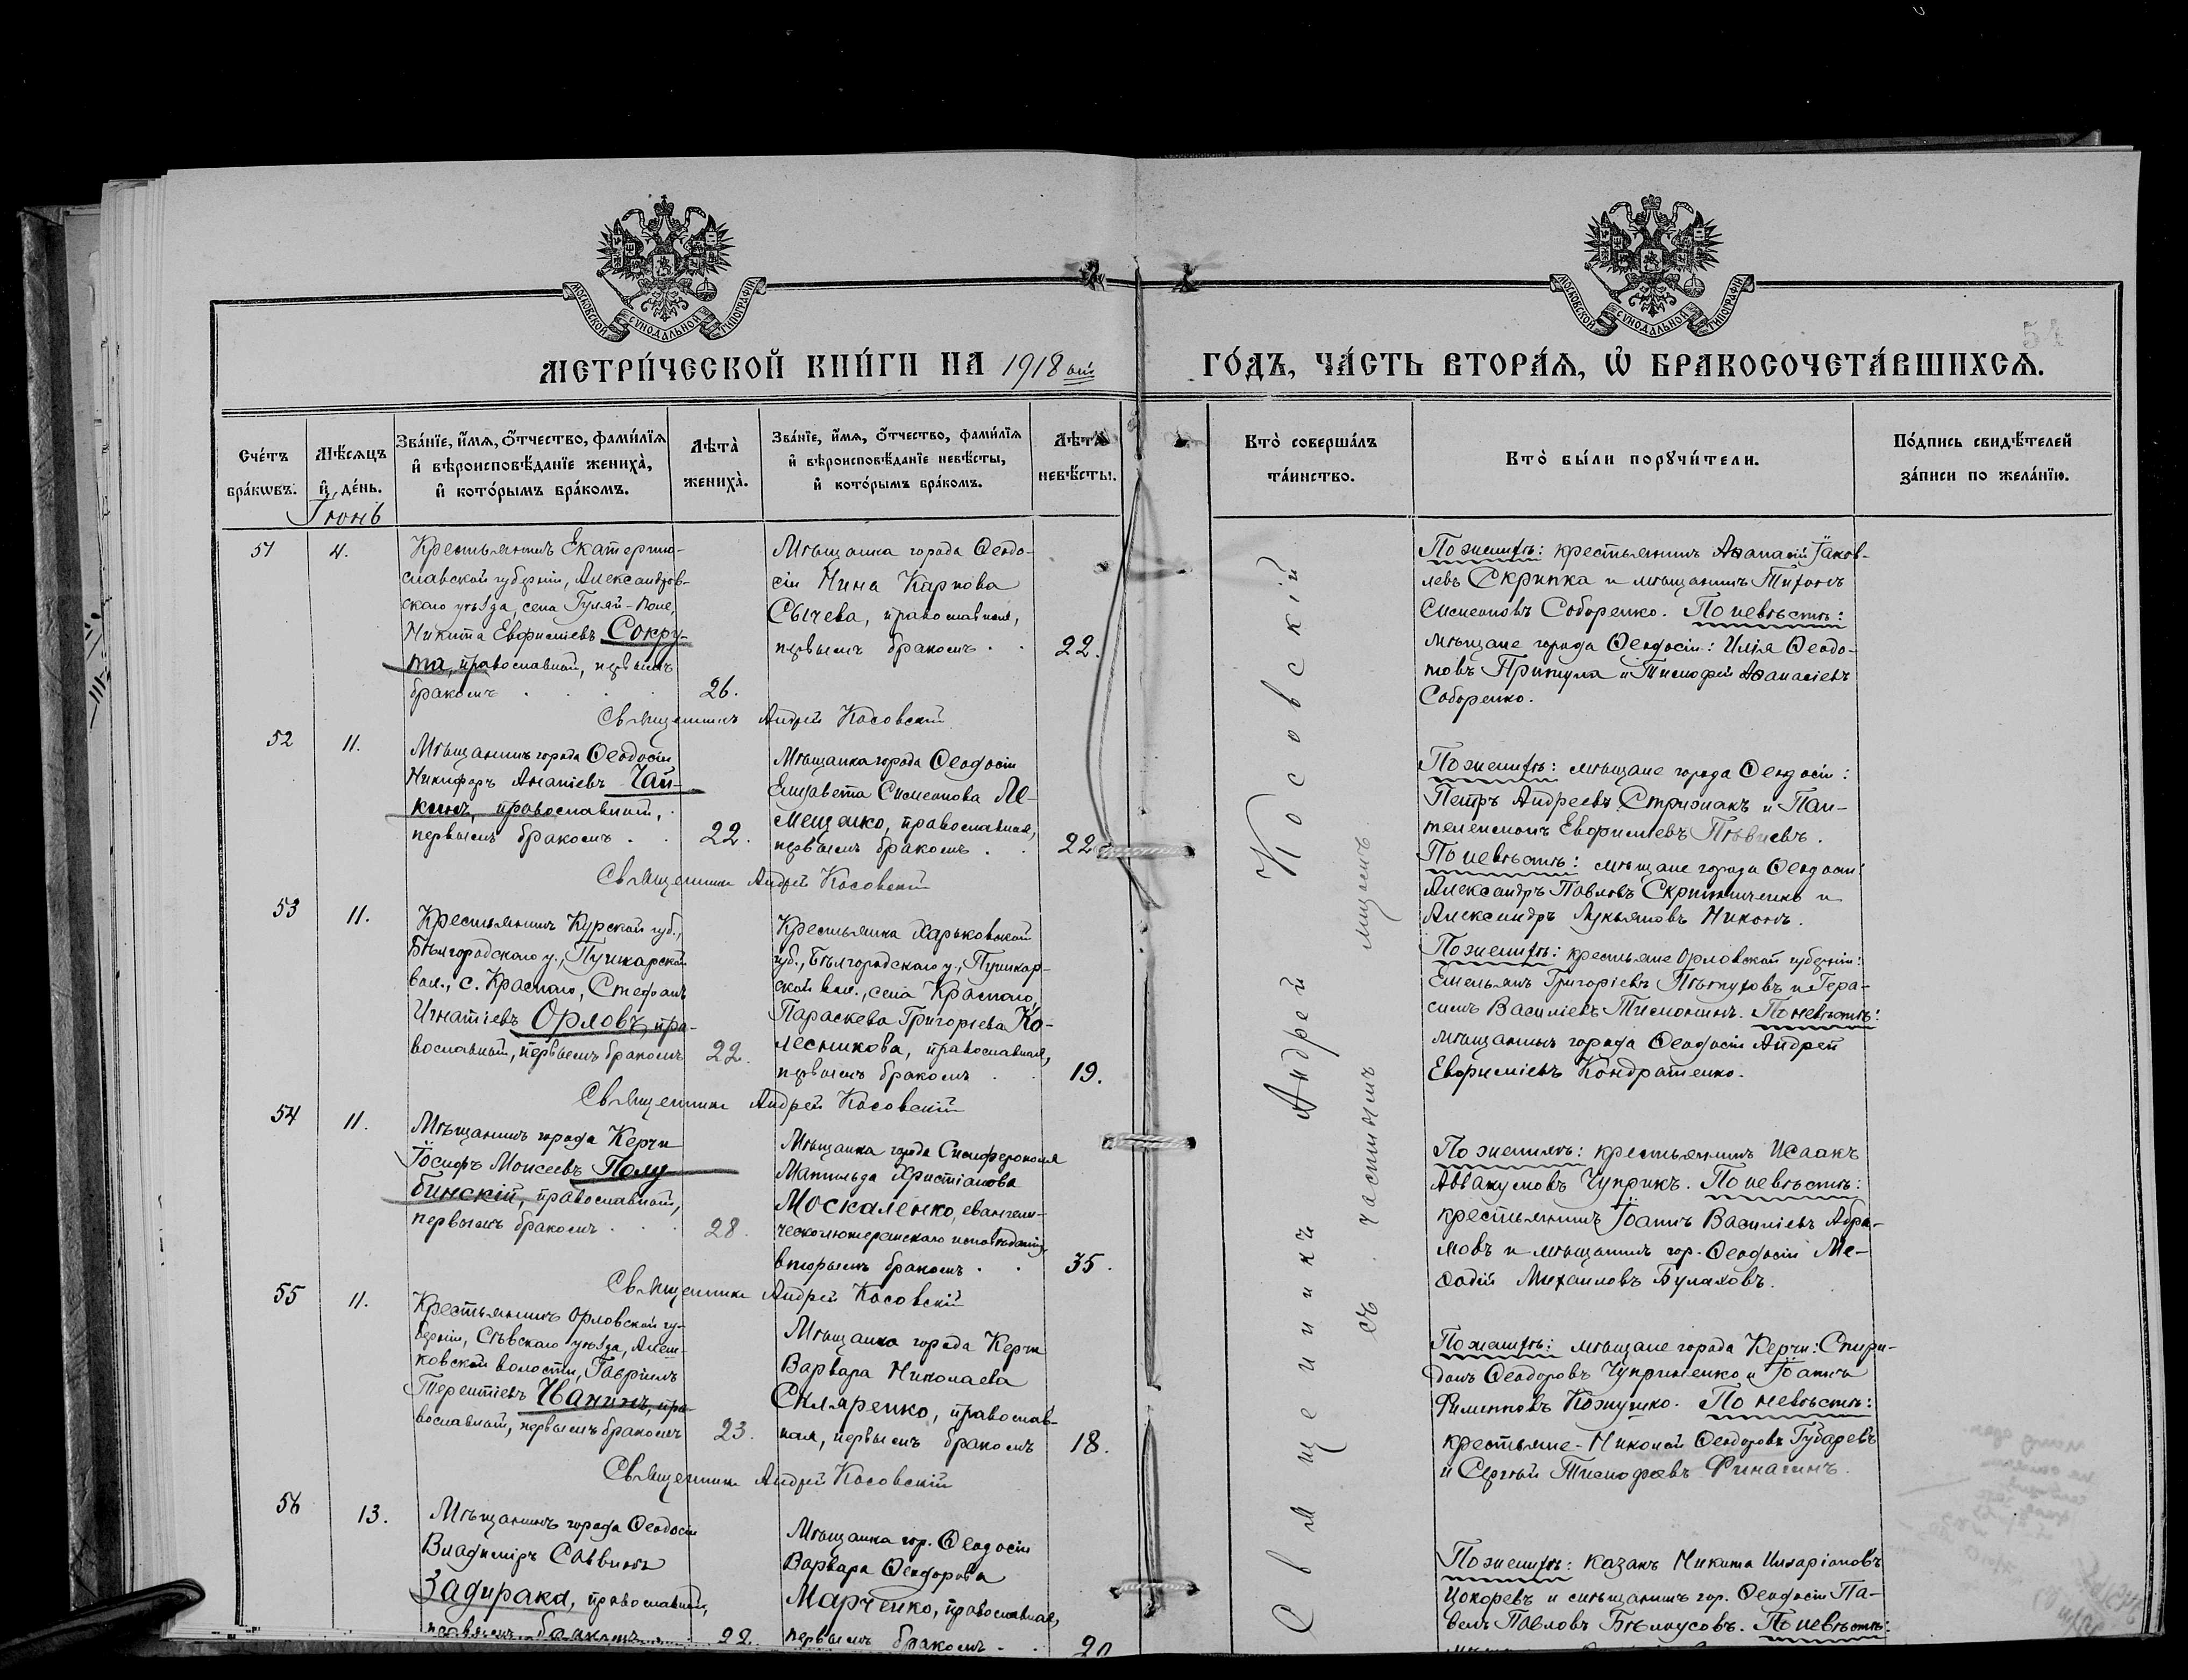 МОСКОВСКОЙ СѴНОДАЛЬНОЙ ТИПОГРАФІИ
МОСКОВСКОЙ СѴНОДАЛЬНОЙ ТИПОГРАФІИ
МЕТРИ́ЧЕСКОЙ КНИ́ГИ НА 1918 ГО́ДЪ, ЧА́СТЬ ВТОРА́Ѧ, Ѡ҆ БРАКОСОЧЕТА́ВШИХСѦ.
Сче́тъ бра́кѡвъ.
Мѣ́сѧцъ и҆ де́нь.
Зва́нїе, и҆́мѧ, ѻ҆́тчество, фами́лїѧ
и҆ вѣроисповѣ́данїе жениха̀,
и҆ кото́рымъ бра́комъ.
Лѣта̀ жениха̀.
Зва́нїе, и҆́мѧ, ѻ҆́тчество, фами́лїѧ
и҆ вѣроисповѣ́данїе невѣ́сты,
и҆ кото́рымъ бра́комъ.
Лѣта̀ невѣ́сты.
Кто̀ соверша́лъ
та́инство.
Кто̀ бы́ли порꙋчи́тели.
По́дпись свидѣ́телей
за́писи по жела́нїю.
Іюнь
51
4.
Крестьянинъ Екатерино-
славской губерніи, Александров-
скаго уѣзда, села Гуляй-Поле,
Никита Евфиміевъ Сокру-
та, православный, первымъ
бракомъ
26.
Мѣщанка города Ѳеодо-
сіи Нина Карпова
Сычева, православная,
первымъ бракомъ
22.
По женихѣ: крестьянинъ Аѳанасій Іаков-
левъ Скрипка и мѣщанинъ Тихонъ
Симеоновъ Соборенко. По невѣстѣ:
мѣщане города Ѳеодосіи: Илія Ѳеодо-
товъ Притула и Тимофей Аѳанасіевъ
Соборенко.
Священникъ Андрей Косовскій
52
11.
Мѣщанинъ города Ѳеодосіи
Никифоръ Ананіевъ Чай-
кинъ, православный,
первымъ бракомъ
22.
Мѣщанка города Ѳеодосіи
Елизавета Симеонова Ле-
мещенко, православная,
первымъ бракомъ
22
По женихѣ: мѣщане города Ѳеодосіи:
Петръ Андреевъ Стрижакъ и Пан-
телеимонъ Евфиміевъ
По невѣстѣ: мѣщане города Ѳеодосіи:
Александръ Павловъ и
Александръ Лукьяновъ
Священникъ Андрей Косовскій
53
11.
Крестьянинъ Курской губ.,
Бѣлгородскаго у., Пушкарской
вол., с. Краснаго, Стефанъ
Игнатіевъ Орловъ, пра-
вославный, первымъ бракомъ
22.
Крестьянка Харьковской
губ., Бѣлгородскаго у., Пушкар-
ской вол., села Краснаго,
Параскева Григорьева Ко-
лесникова, православная,
первымъ бракомъ
19.
По женихѣ: крестьяне Орловской губерніи:
Емельянъ Григоріевъ Пѣтуховъ и Гера-
симъ Василіевъ Тимонинъ. По невѣстѣ:
мѣщанинъ города Ѳеодосіи Андрей
Евфиміевъ Кондратенко.
Священникъ Андрей Косовскій
54
11.
Мѣщанинъ города Керчи
Іосифъ Моисеевъ Полу-
бинскій, православный,
первымъ бракомъ
28.
Мѣщанка города Симферополя
Матильда Христіанова
Москаленко, евангели-
ческолютеранскаго исповѣданія,
вторымъ бракомъ
35.
По женихѣ: крестьянинъ Исаакъ
Аввакумовъ Чуприкъ. По невѣстѣ:
крестьянинъ Іоаннъ Василіевъ Абра-
мовъ и мѣщанинъ гор. Ѳеодосіи Ме-
ѳодій Михаиловъ Булаховъ.
Священникъ Андрей Косовскій
55
11.
Крестьянинъ Орловской гу-
берніи, Сѣвскаго уѣзда, Алеш-
ковской волости, Гавріилъ
Терентіевъ Чванинъ, пра-
вославный, первымъ бракомъ
23.
Мѣщанка города Керчи
Варвара Николаева
Скляренко, православ-
ная, первымъ бракомъ
18.
По женихѣ: мѣщане города Керчи: Спири-
донъ Ѳеодоровъ Чуприненко и Іоаннъ
Филипповъ Кожушко. По невѣстѣ:
крестьяне - Николай Ѳеодоровъ Губаревъ
и Сергѣй Тимофеевъ Финагинъ.
Священникъ Андрей Косовскій
56
13.
Мѣщанинъ города Ѳеодосіи
Владиміръ Саввинъ
Задирака, православный,
первымъ бракомъ
22.
Мѣщанка гор. Ѳеодосіи
Варвара Ѳеодорова
Марченко, православная,
первымъ бракомъ
20
По женихѣ: казакъ Никита Иларіоновъ
Цокоревъ и мѣщанинъ гор. Ѳеодосіи Па-
велъ Павловъ Бѣлоусовъ. По невѣстѣ:
Священникъ Андрей Косовскій
съ